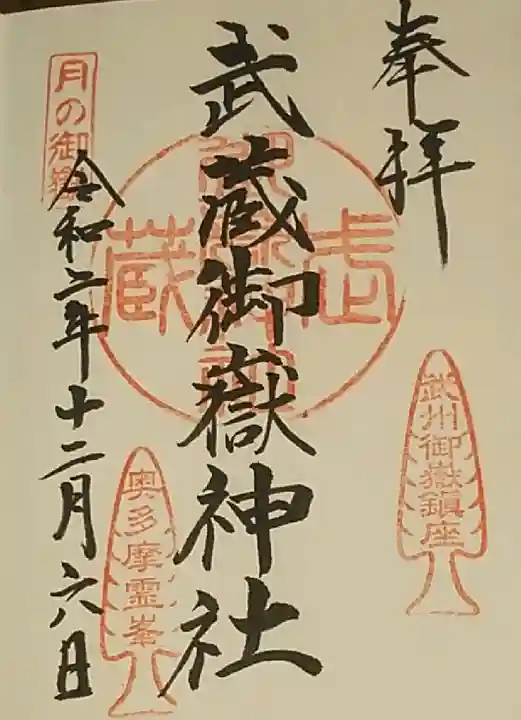 奉拝
武州御嶽鎮座
武蔵御嶽神社
武蔵
月の御嶽
令和二年十二月六日
奥多摩霊峯